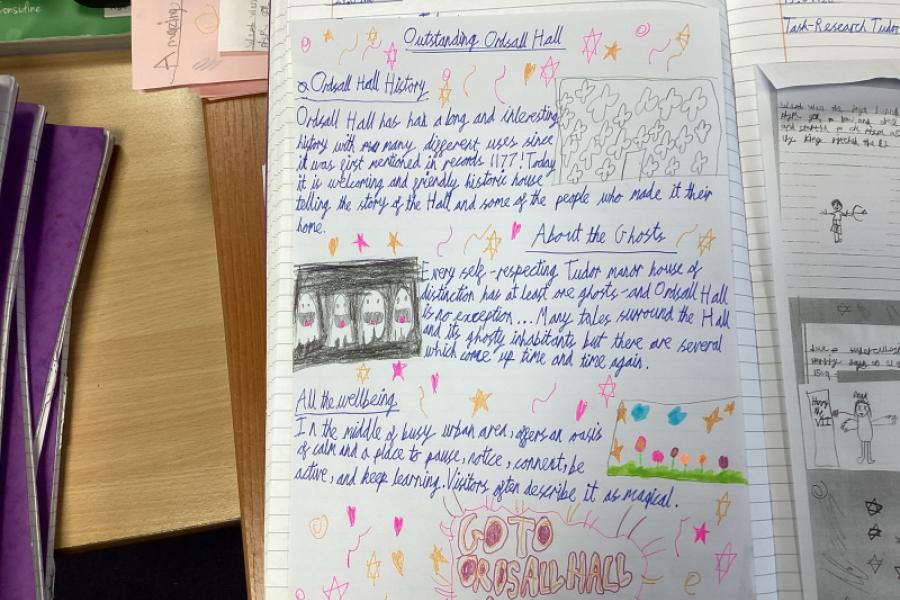 Consifine
Amazing
Outstanding Ordsall Hall
Ordsall Hall History
Ordsall Hall has had a long and interesting
history with many different uses since
it was first mentioned in records 1177! Today
it is welcoming and friendly historic house
telling the story of the Hall and some of the people who made it their
home.
About the Ghosts
Every self-respecting Tudor manor house of
distinction has at least one ghosts-and Ordsall Hall
is no exception... Many tales surround the Hall
and its ghostly inhabitants but there are several
which come up time and time again.
All the wellbeing
In the middle of busy urban area, offers an oasis
of calm and a place to pause, notice, connent, be
active, and keep learning. Visitors often describe it as magical.
GO TO
ORDSALL HALL
Task-Research Tudor